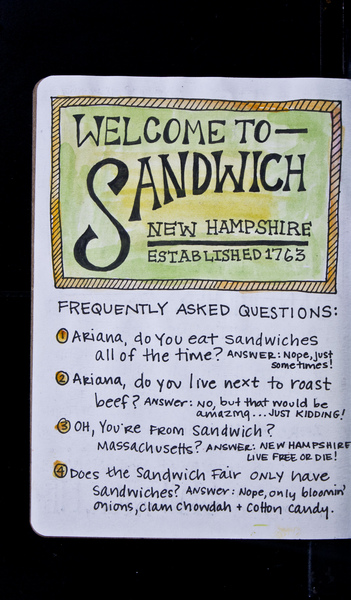 WELCOME TO—
SANDWICH
NEW HAMPSHIRE
ESTABLISHED 1763
FREQUENTLY ASKED QUESTIONS:
1 Ariana, do you eat sandwiches
all of the time? ANSWER: Nope, just
sometimes!
2 Ariana, do you live next to roast
beef? Answer: NO, but that would be
amazing... JUST KIDDING!
3 OH, You're FROM Sandwich?
Massachusetts? ANSWER: NEW HAMPSHIRE
LIVE FREE OR DIE!
4 Does the Sandwich Fair ONLY have
Sandwiches? Answer: Nope, only bloomin'
onions, clam chowdah + cotton candy.